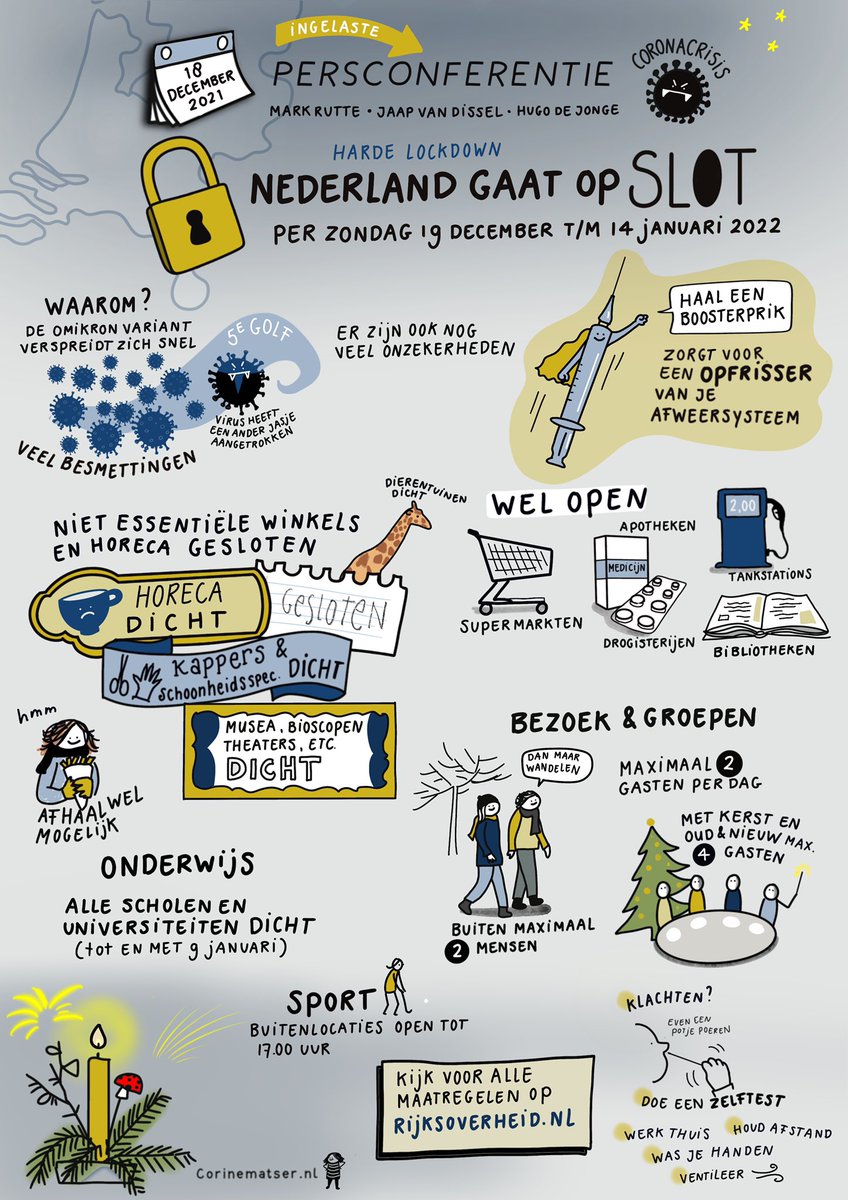 INGELASTE
18
DECEMBER
2021
PERSCONFERENTIE
CORONACRISIS
MARK RUTTE • JAAP VAN DISSEL • HUGO DE JONGE
HARDE LOCKDOWN
NEDERLAND GAAT OP SLOT
PER ZONDAG 19 DECEMBER T/M 14 JANUARI 2022
WAAROM?
DE OMIKRON VARIANT
VERSPREIDT ZICH SNEL
5E GOLF
VIRUS HEEFT
EEN ANDER JASJE
AANGETROKKEN
VEEL BESMETTINGEN
ER ZIJN OOK NOG
VEEL ONZEKERHEDEN
HAAL EEN
BOOSTERPRIK
ZORGT VOOR
EEN OPFRISSER
VAN JE
AFWEERSYSTEEM
NIET ESSENTIËLE WINKELS
EN HORECA GESLOTEN
DIERENTUINEN
DICHT
HORECA
DICHT
GESLOTEN
KAPPERS &
SCHOONHEIDSSPEC. DICHT
MUSEA, BIOSCOPEN
THEATERS, ETC.
DICHT
hmm
AFHAAL WEL
MOGELIJK
WEL OPEN
SUPERMARKTEN
APOTHEKEN
MEDICIJN
DROGISTERIJEN
2,00
TANKSTATIONS
BIBLIOTHEKEN
BEZOEK & GROEPEN
DAN MAAR
WANDELEN
BUITEN MAXIMAAL
2 MENSEN
MAXIMAAL 2
GASTEN PER DAG
MET KERST EN
OUD & NIEUW MAX.
4 GASTEN
ONDERWIJS
ALLE SCHOLEN EN
UNIVERSITEITEN DICHT
(TOT EN MET 9 JANUARI)
SPORT
BUITENLOCATIES OPEN TOT
17.00 UUR
KIJK VOOR ALLE
MAATREGELEN OP
RIJKSOVERHEID.NL
KLACHTEN?
EVEN EEN
POTJE POEREN
DOE EEN ZELFTEST
WERK THUIS
HOUD AFSTAND
WAS JE HANDEN
VENTILEER
Corinematser.nl